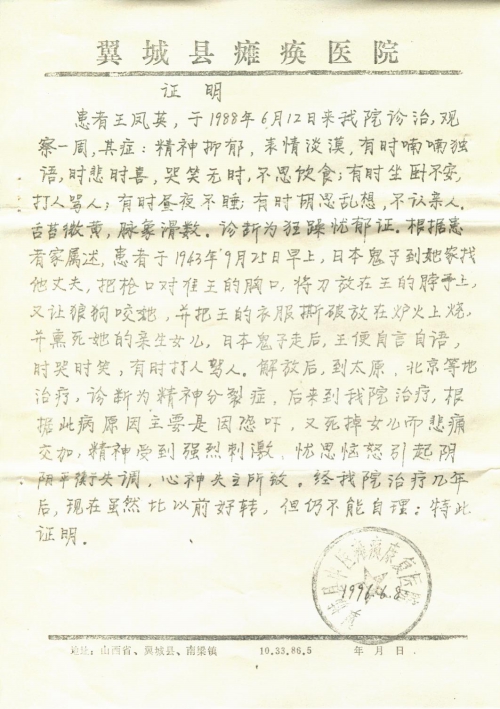 翼城县瘫痪医院
证明
患者王凤英，于1988年6月12日来我院诊治，观
察一周，其症：精神抑郁，表情淡漠，有时喃喃独
语，时悲时喜，哭笑无时，不思饮食；有时坐卧不安，
打人骂人；有时昼夜不睡；有时胡思乱想，不认亲人。
舌苔微黄，脉象滑数。诊断为狂躁忧郁证。根据患
者家属述，患者于1943年9月25日早上，日本鬼子到她家找
他丈夫，把枪口对准王的胸口，将刀放在王的脖子上，
又让狼狗咬她，并把王的衣服撕破放在炉火上烧，
并熏死她的亲生女儿，日本鬼子走后，王便自言自语，
时哭时笑，有时打人骂人。解放后，到太原、北京等地
治疗，诊断为精神分裂症，后来到我院治疗，根
据此病原因主要是因恐吓，又死掉女儿而悲痛
交加，精神受到强烈刺激、忧思恼怒引起阴
阳平衡失调，心神失主所致。经我院治疗几年
后，现在虽然比以前好转，但仍不能自理；特此
证明。
1996.6.8
地址：山西省、翼城县、南梁镇 10.33.86.5 年月日